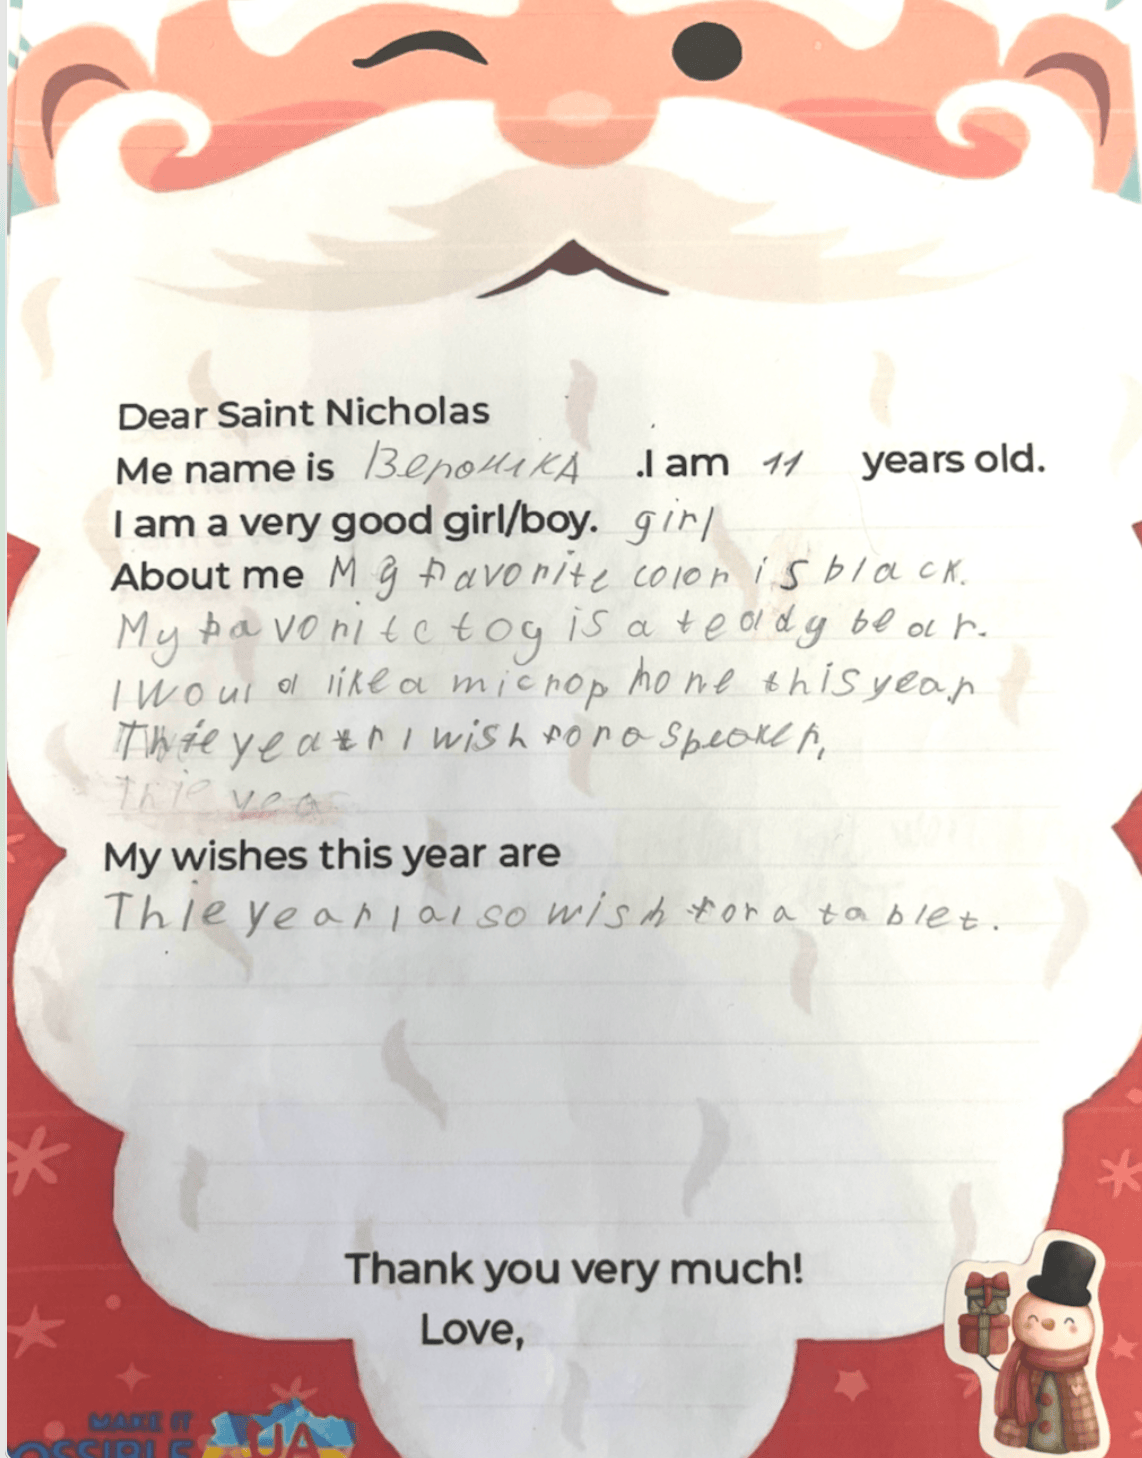 Dear Saint Nicholas
Me name is Вероніка .I am 11 years old.
I am a very good girl/boy. girl
About me My favorite color is black.
My favorite toy is a teddy bear.
I Would like a microphone this year
Thie year I wish for a speaker,
Thie yea
My wishes this year are
Thie year I also wish for a tablet.
Thank you very much!
Love,
MAKE IT
OSSIBLE UA